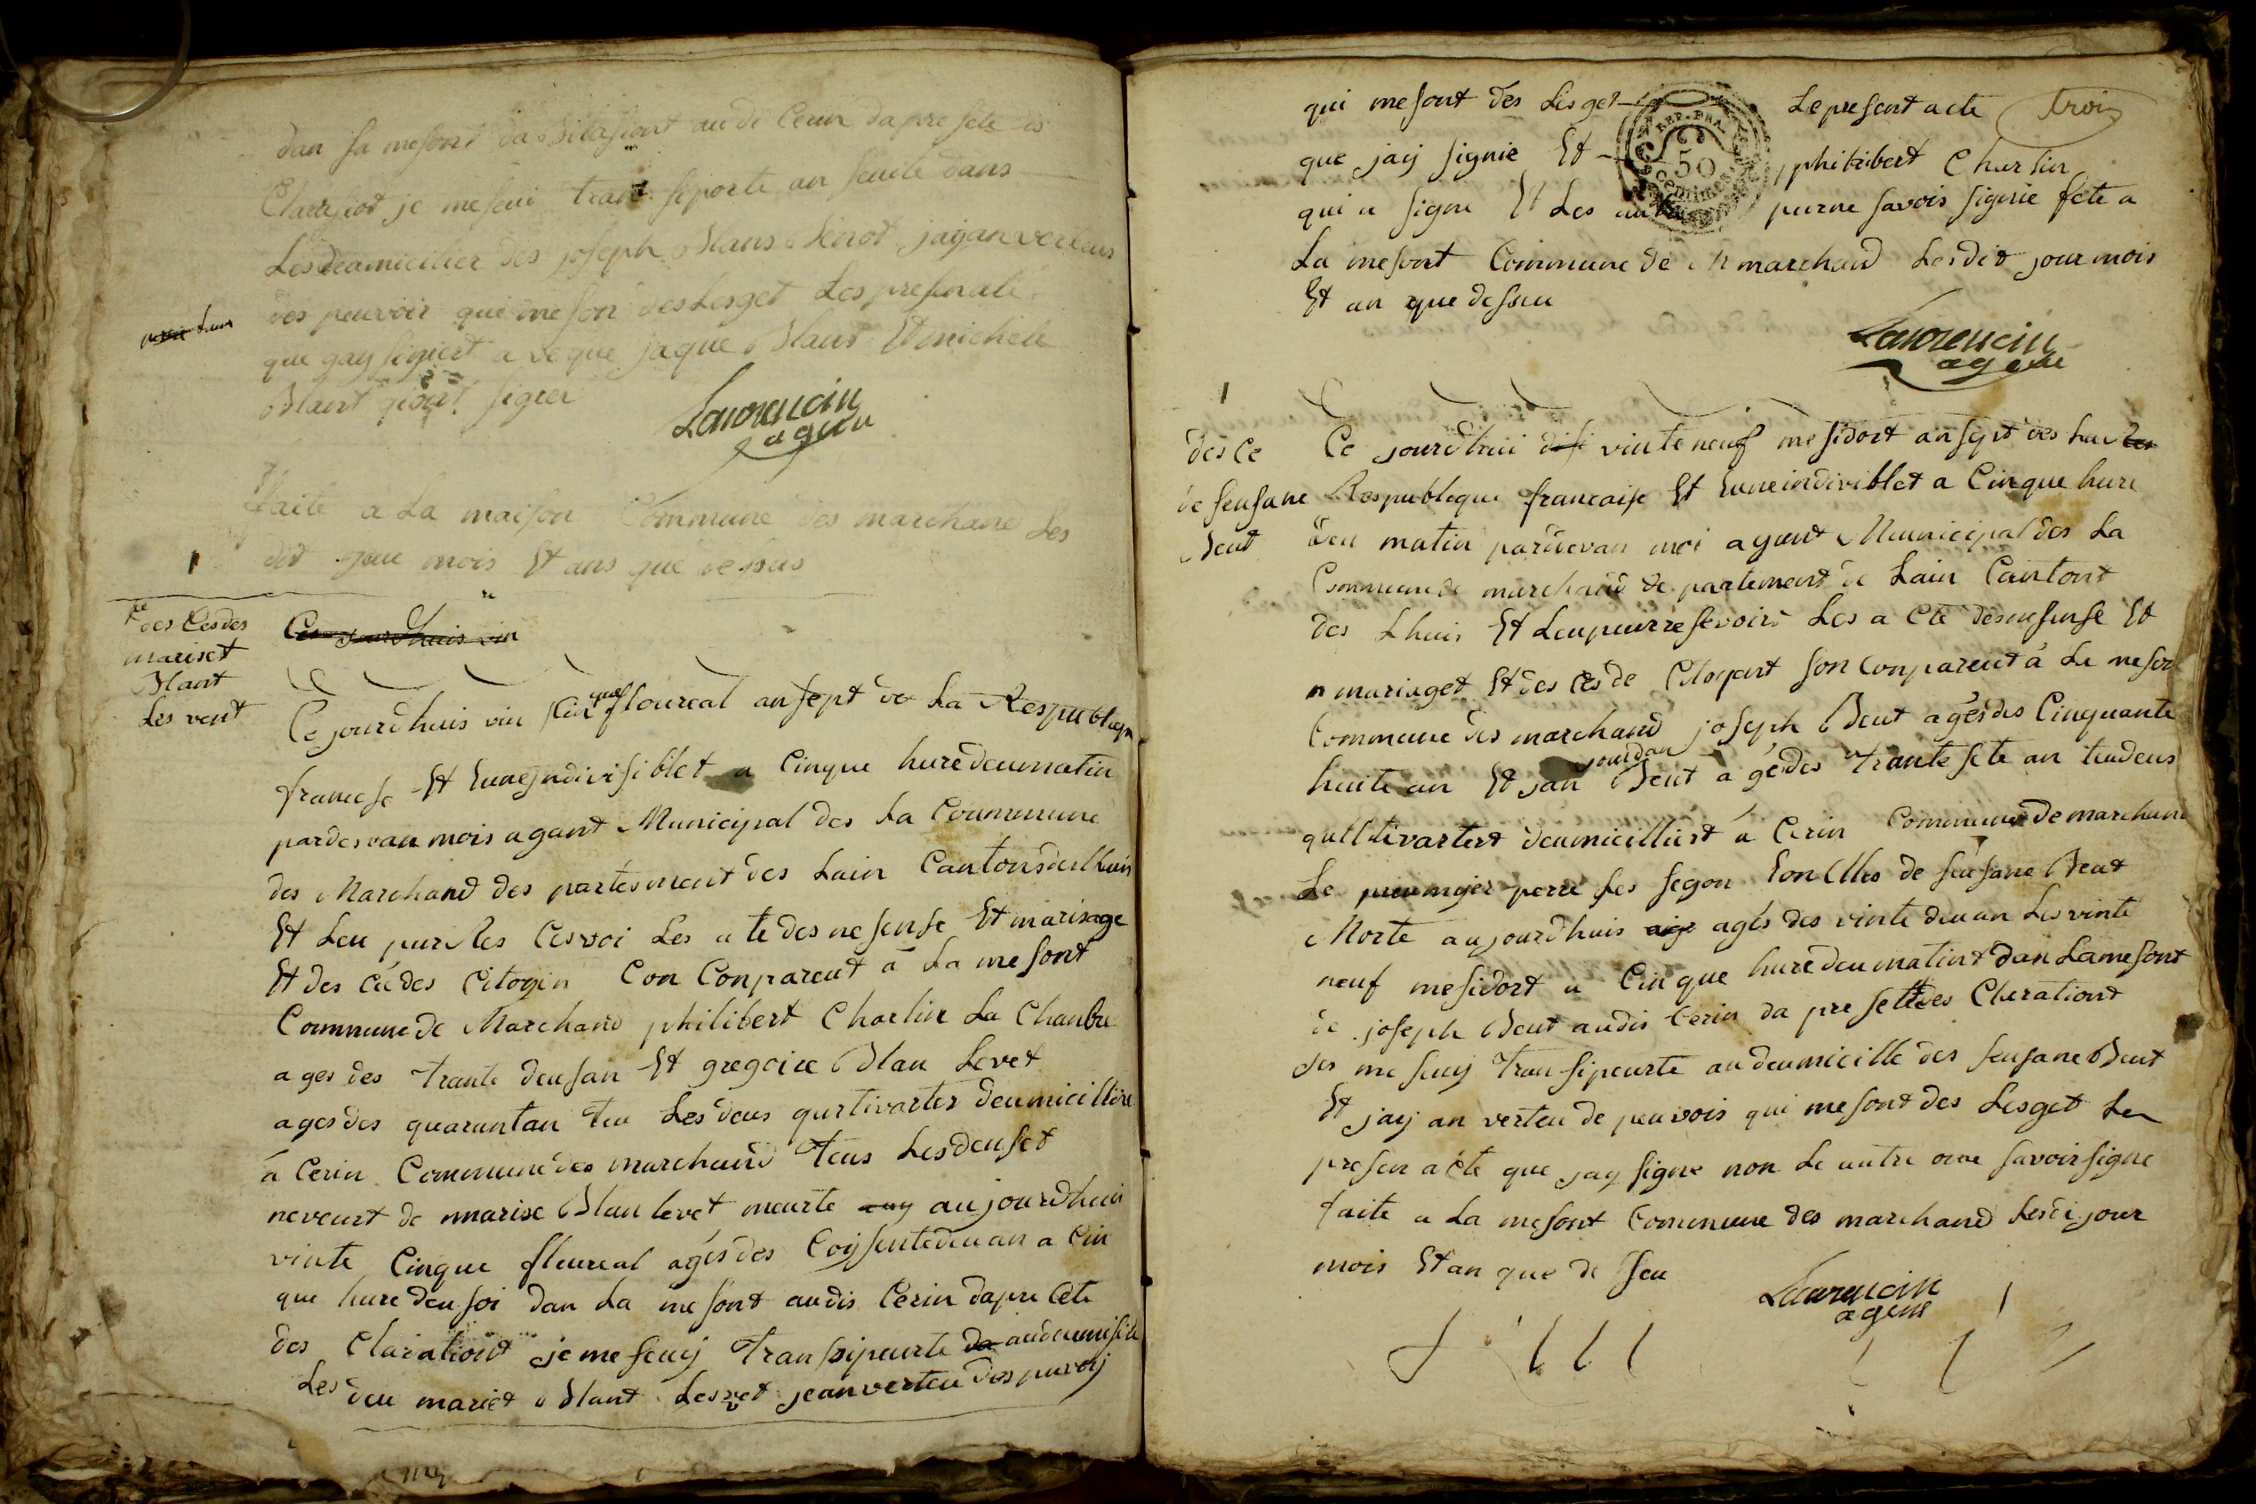 dan sa mesont dabitasiont au di Cerin dapre sete des
Clarasiot je me sui trant siporte an suite dans
Les deamicilier des joseph Blans Benot jay an verteus
des peuvoir que me son des Lesget Les presmate
que jay signiert a veque jaque Blant Et michele
Blant qiont signer
Laurencin
agean
faite a La maison Commune des marchand Les
dit jour mois Et ans que dessus
des Ces des
mariset
Blant
Les vent
Ce jourdhuis vin
Ce jourdhuis vin sinque floureal an sept de La Respubleque
francese Et Eune jndivisiblet a Cinque hure deu matin
pardesvan mois agant Municipal des La Coummune
des Marchand des partesment des Lain Cantons des Lhuis
Et Leu pur Res Cesvoi Les a te des nesense Et marisage
Et des cé des Citoyin Con Conparent à La mesont
Commune de Marchand philibert Charlin La Chanbre
ages des trante deusan Et gregoire Blan Levet
ages des quarantan teu Les deus qurtivarter deumicillire
à Cerin Commune des marchand teus Les deuset
neveurt de marise Blan levet meurte auy aujourdhuis
vinte Cinque fleureal agés des Coysente deu an a Cin
que hure deu soi dan La mesont audis Cerin dapre Cete
des Claration je me seuy transipeurte da audeumisile
Les deu mariet Blant Lesvet jean verteu des puvoij
qui mesont des Lesget Le present acte trois
que jaij signie Et philibert Charlin
qui a signe Et Les autre purne savois signie fete a
La mesont Commune de marchand Lesdit jour mois
Et an que desseu
Laurencin
agent
des Ce
de seusane
Beut
Ce jourdhui disi vinte neuf mesidort an sept des La
Respubleque francaise Et Eune indiviblet a Cinque hure
deu matin pardevan moi agent Municipal des La
Commune de marchand de partement de Lain Cantont
des Lhuis Et Leu peurresevoir Les a Cte desnesense Et
mariaget Et des cés de Citoyent son Conparent à Le meson
Commune des marchand joseph Beut agés des Cinquante
huite an Et jan jourdan Beut agés des trante sete an teudeus
qulltivartert deumicilliert à Cerin Commune de marchand
Le preumyer perre Les segon Eonclles de seusane Beut
Morte aujourdhuis age agés des vinte deu an Les vinte
neuf mesidort a Cinque hure deu matint dan La mesont
de joseph Beut audis Cerin da pre sette des Clarationt
Jes me seuy tran sipeurte au deumicille des seusane Beut
Et jaij an verteu de peuvois qui mesont des Lesget Leu
presen acte que jay signe non Le autre ne savoir signe
faite a La mesont Commune des marchand Lesdi jour
mois Et an que de sseu
Laurencin
agent